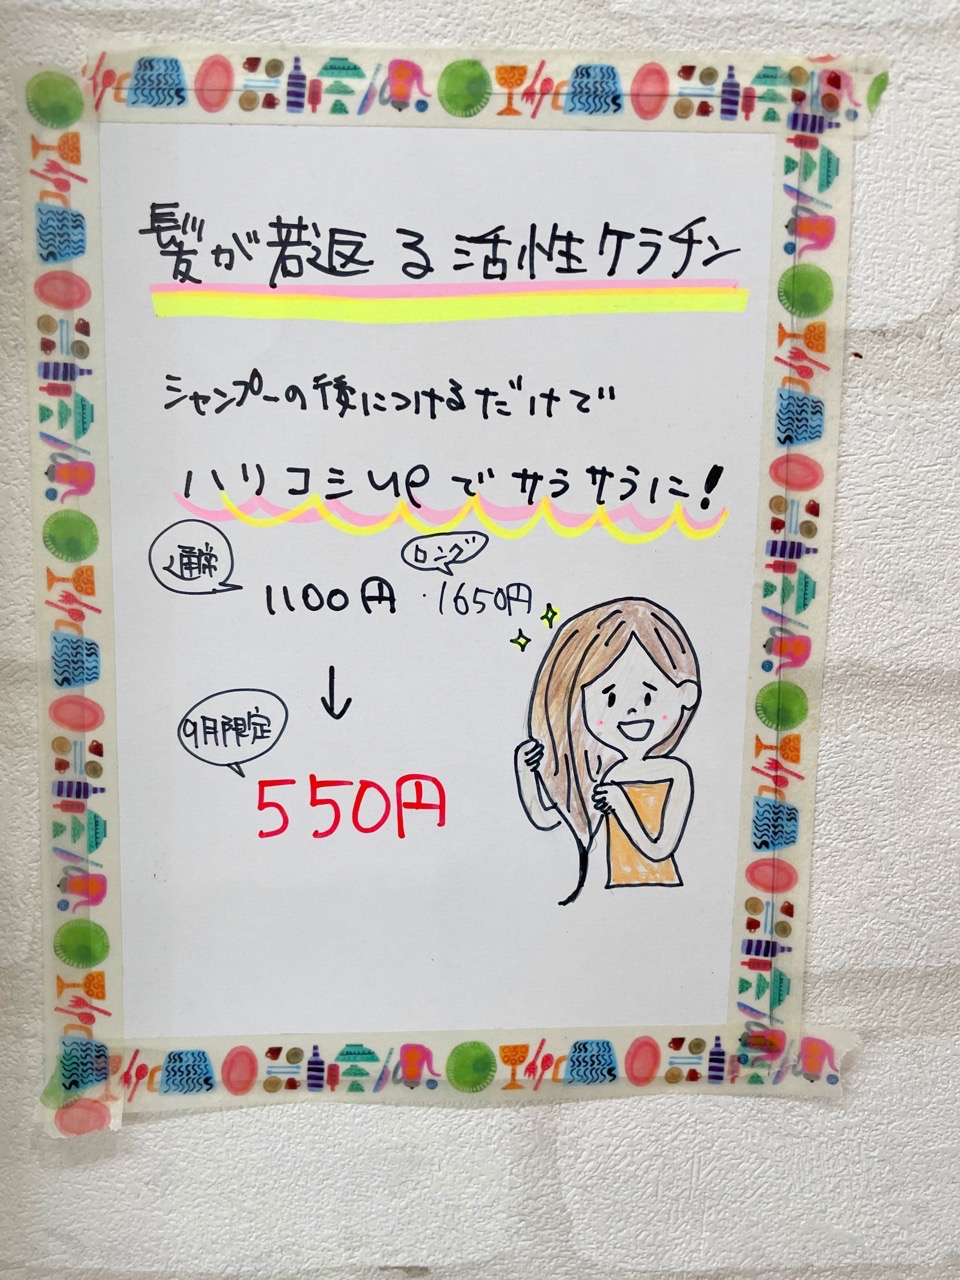 髪が若返る活性ケラチン
シャンプーの後につけるだけで
ハリコシupでサラサラに!
通常
ロング
1100円・1650円
↓
9月限定
550円